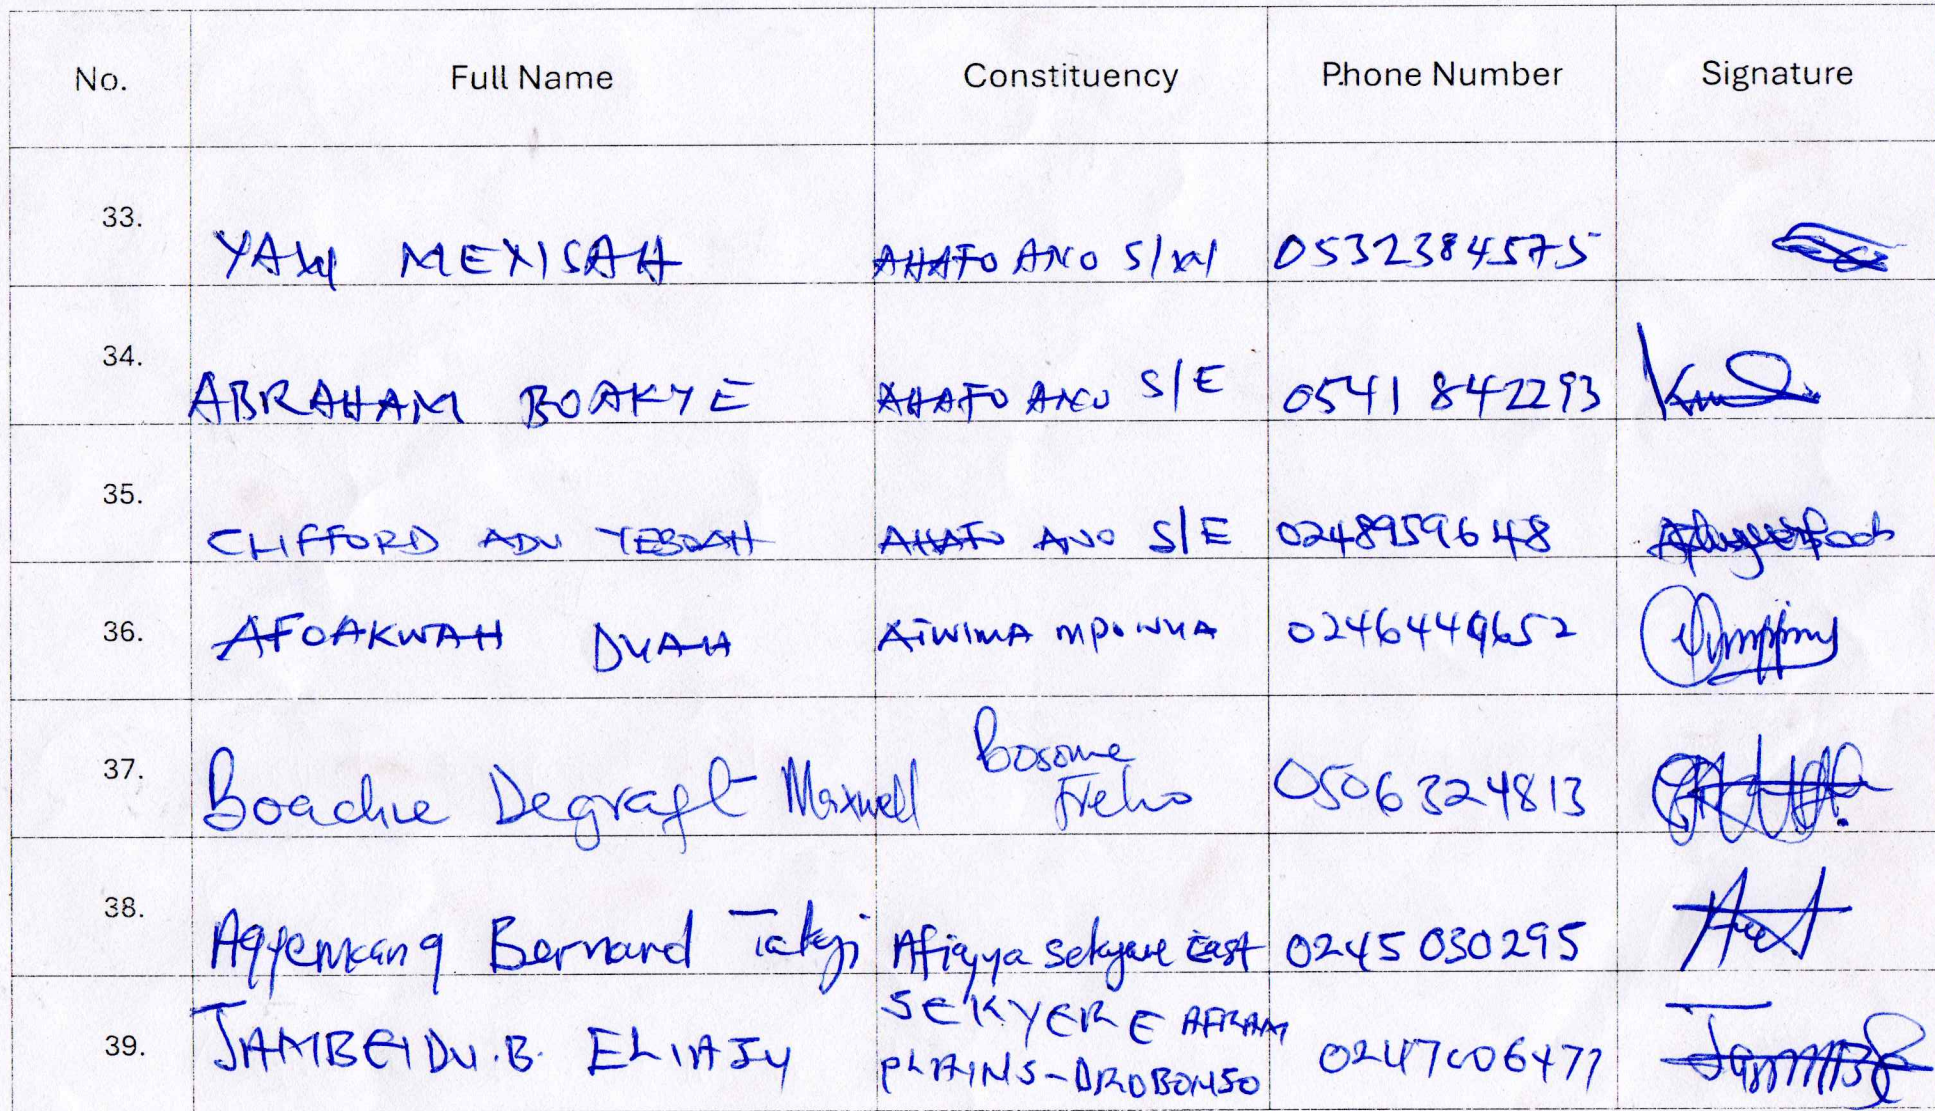 No. Full Name Constituency Phone Number Signature
33. YAW MENSAH AHAFO ANO S/W 0532384575
34. ABRAHAM BOAKYE AHAFO ANO S/E 0541842293
35. CLIFFORD ADU YEBOAH AHAFO ANO S/E 0248959648
36. AFOAKWAH DUAH ATWIMA MPONUA 0246449652
37. Boachie Degraft Maxwell Bosome Freho 0506324813
38. Agyemang Bernard Afigya Sekyere East 0245030295
39. JAMBEIDU.B. SEKYERE AFRAM
PLAINS-DROBONSO